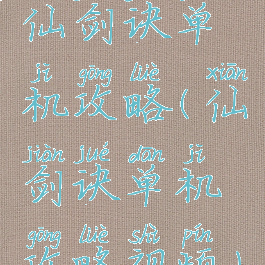 仙剑诀单
jī gōng lüè xiān
机攻略(仙
jiàn jué dān jī
剑诀单机
gōng lüè shì pín
攻略视频)